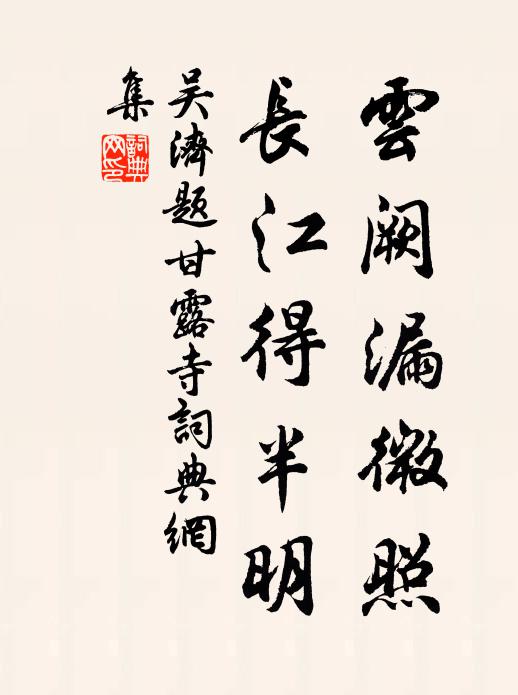 雲阙漏微照
長江得半明
吴濟題甘露寺詞典網
集
詞典
网印